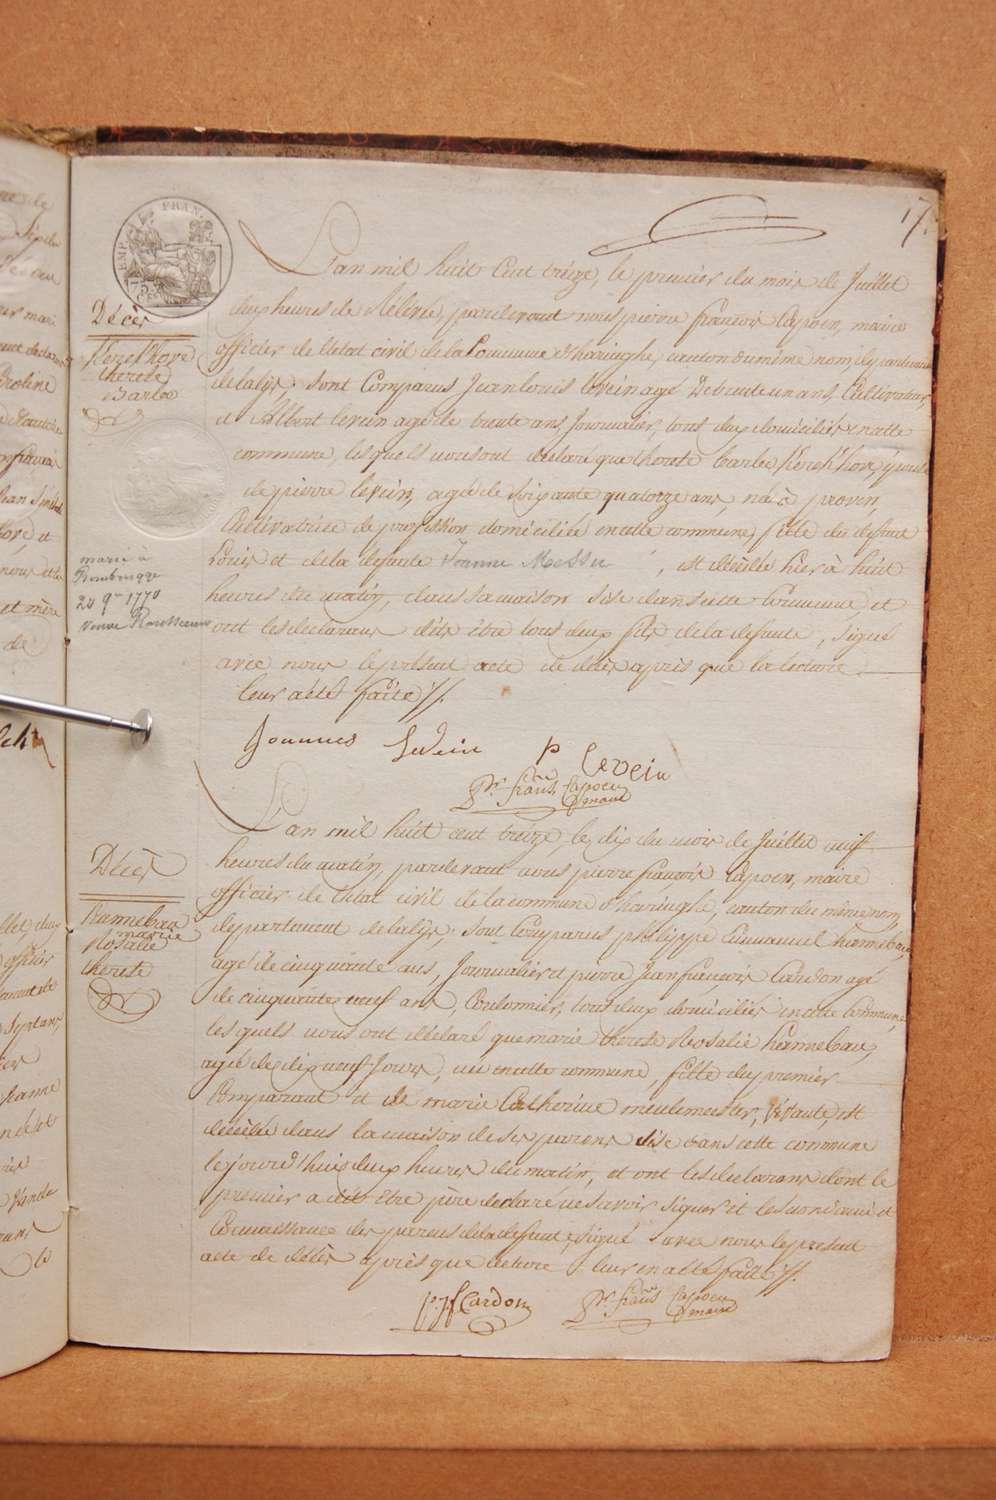 17.
EMPIRE FRAN.
75
Décès
Kerekhove
therese
Barbe
L'an mil huit Cent treize, le premier du mois de Juillet
deux heures de Relevée, pardevant nous pierre francois Capoen, maire
officier de l'etat civil de la Commune d'haringhe, canton du même nom,
de la lys sont Comparus Jean louis levein agé de trente un ans Cultivateur,
et Albert levein agé de trente ans Journalier, tous deux domiciliés en cette
commune, lesquels nous ont déclaré que therese barbe Kerekhove, épouse
de pierre levein, agée de soixante quatorze ans, née à proven,
Cultivatrice de profession, domiciliée en cette commune, fille du defunt
Louis et de la defunte Joanne Messu, est décédée hier à huit
heures du matin, dans sa maison sise dans cette Commune, et
ont les declarans dits être tous deux fils de la defunte, signé
avec nous le présent acte de décès après que la lecture
leur a été faite //.
marié à
Rousbrugge
20 9re 1770
veuve
Joannes Levein p Levein
Pre frans Capoen
maire
Décès
Hannebau
marie
Rosalie
therese
L'an mil huit cent treize, le dix du mois de Juillet neuf
heures du matin, pardevant nous pierre francois Capoen, maire
officier de l'etat civil de la commune d'haringhe, canton du même nom,
departement de la lys, sont Comparus philippe Emmanuel hannebau,
agé de cinquante ans, Journalier et pierre Jean francois Cardon agé
de cinquante neuf ans, Cordonnier, tous deux domiciliés en cette Commune,
les quels nous ont déclaré que marie therese Rosalie hannebau,
agée de dix neuf Jours, née en cette commune, fille du premier
Comparant et de marie Catherine meulemeester, vivante, est
décédée dans la maison de ses parens sise dans cette commune
le jourd'huis deux heures du matin, et ont les declarans dont le
premier a dit être père declaré ne savoir signer et le second ami et
Connaissance des parens de la defunte, signé avec nous le présent
acte de décès après que lecture leur en a été faite //.
P. J. f Cardon Pre frans Capoen
maire